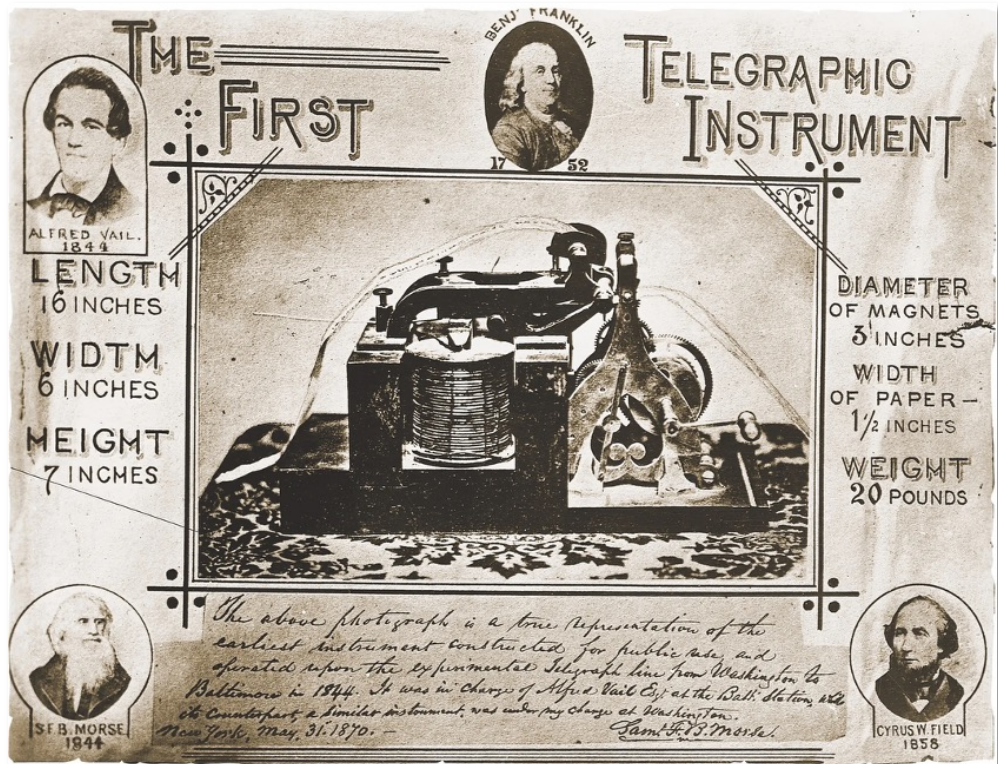 THE
FIRST
BENJ. FRANKLIN
1752
TELEGRAPHIC
INSTRUMENT
ALFRED VAIL.
1844
LENGTH
16 INCHES
WIDTH
6 INCHES
HEIGHT
7 INCHES
DIAMETER
OF MAGNETS
3 INCHES
WIDTH
OF PAPER—
1 1/2 INCHES
WEIGHT
20 POUNDS
The above photograph is a true representation of the
earliest instrument constructed for public use, and
operated upon the experimental Telegraph line from Washington to
Baltimore in 1844. It was in charge of Alfred Vail Esq. at the Balt. Station, and
its Counterpart, a similar instrument, was under my charge at Washington.
New York, May, 31. 1870. —
Saml. F. B. Morse.
S. F. B. MORSE
1844
CYRUS W. FIELD
1858